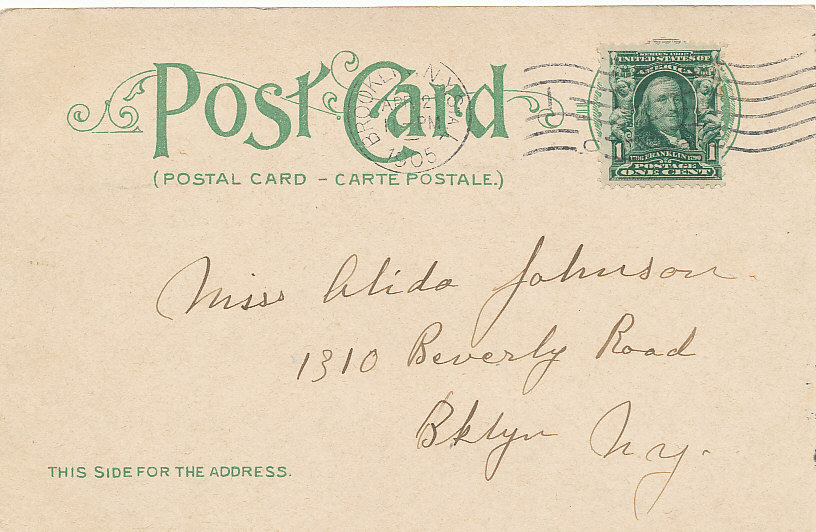 Post Card
(POSTAL CARD - CARTE POSTALE.)
BROOKLYN, N.Y.
STA.
APR 2
PM
1905
SERIES 1902
UNITED STATES OF
AMERICA
1706 FRANKLIN 1790
POSTAGE
1 ONE CENT 1
Miss Alida Johnson
1310 Beverly Road
Bklyn N.Y.
THIS SIDE FOR THE ADDRESS.